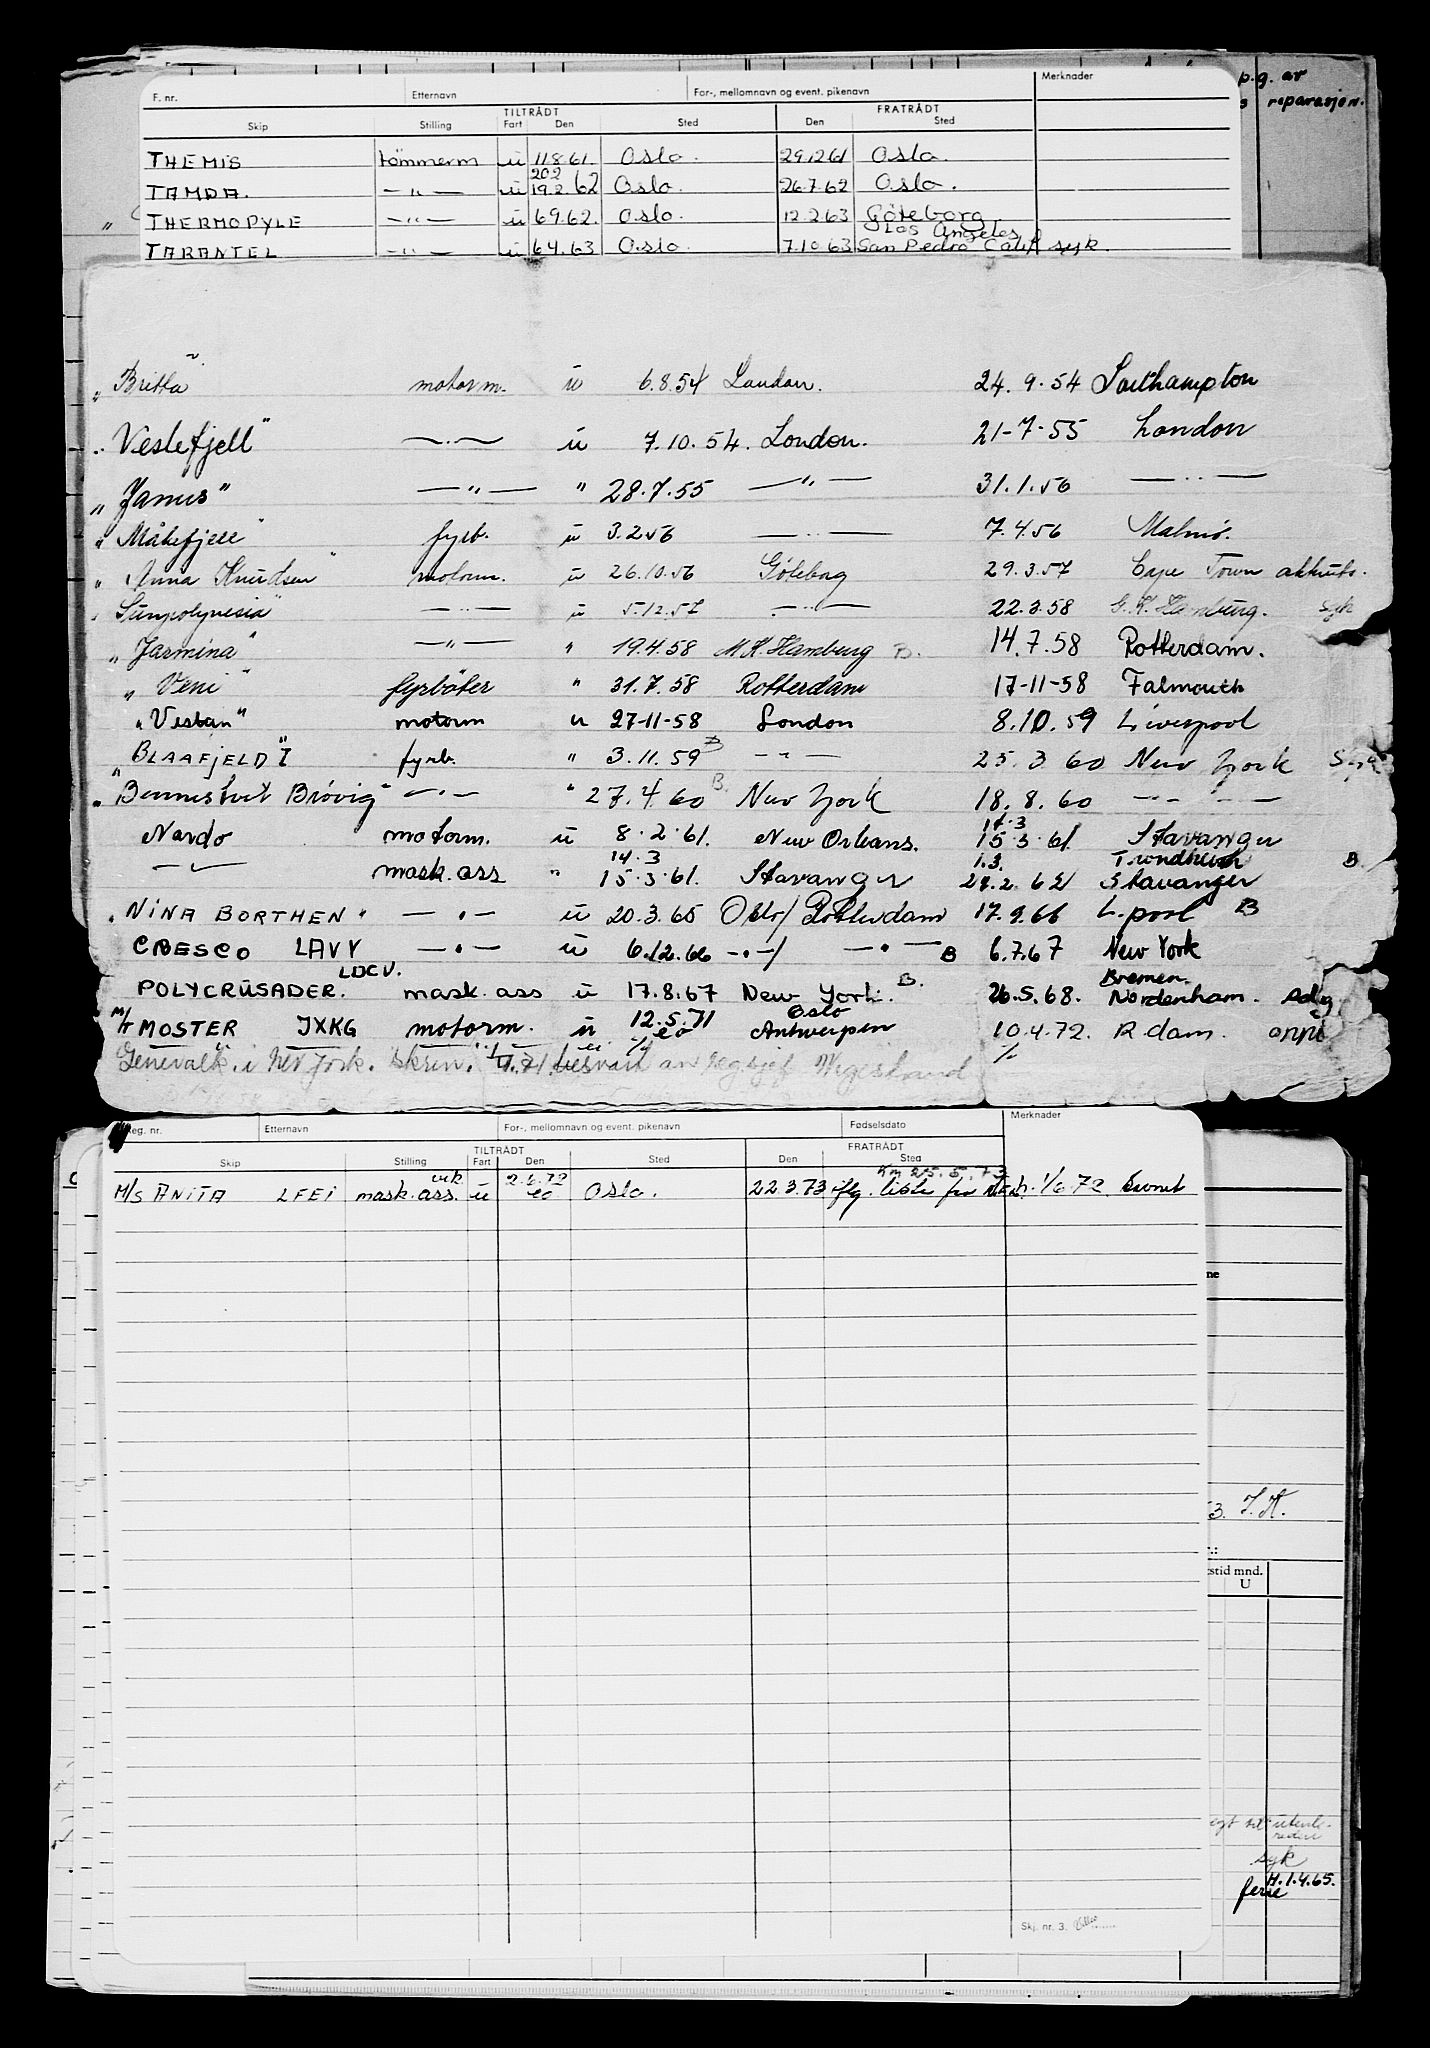 p.g. av
reparasjon.
F. nr. Etternavn For-, mellomnavn og event. pikenavn Merknader
TILTRÅDT FRATRÅDT
Skip Stilling Fart Den Sted Den Sted
THEMIS tömmerm ü 11861. Oslo. 291261 Oslo.
202
TAMPA. —"— ü 19.2.62 Oslo. 26.7.62 Oslo.
" THERMOPYLE —"— ü 6.9.62. Oslo. 12.2.63 Göteborg
Los Angeles
TARANTEL —"— ü 6.4.63 Oslo. 7.10.63 San Pedro Calif syk.
" Britta" motorm. ü 6.8.54 London. 24.9.54 Southampton
" Veslefjell" —"— ü 7.10.54. London. 21-7-55 London
" Janus" —"— " 28.7.55 —"— 31.1.56 —"—
" Måkefjell" fyrb. ü 3.2.56 —"— 7.4.56 Malmö.
" Anna Knudsen" motorm. ü 26.10.56 Göteborg 29.3.57 Cape Town
" Sunpolynesia" —"— ü 5.12.57 —"— 22.3.58 G.K. Hamburg. syk
" Jasmina" —"— " 19.4.58 M.K. Hamburg B. 14.7.58 Rotterdam.
" Veni" fyrböter " 31.7.58 Rotterdam 17-11-58 Falmouth
" Vestan" motorm ü 27-11-58 London 8.10.59 Liverpool
" BLAAFJELD" I fyrb. " 3.11.59 B —"— 25.3.60 New York
" Bennestvet Brövig" —"— " 27.4.60 B. New York 18.8.60 —"—
Nardo motorm. ü 8.2.61. New Orleans. 14.3 15.3.61. Stavanger
14.3 1.3. Trondheim B.
—"— mask.ass " 15.3.61. Stavanger 28.2.62 Stavanger
" NINA BORTHEN " —"— ü 20.3.65 Oslo/ Rotterdam 17.9.66 L.pool B
CRESCO LAVV —"— ü 6.12.66 —"—/ —"— B 6.7.67 New York
LDCV. B. Bremen.
POLYCRUSADER. mask.ass ü 17.8.67 New York. 26.5.68. Nordenham.
Oslo
M/T MOSTER JXKG motorm. ü 12.5.71 Antwerpen 10.4.72. R.dam.
Generalk. i New York.
Reg. nr. Etternavn For-, mellomnavn og event. pikenavn Fødselsdato Merknader
TILTRÅDT FRATRÅDT
Skip Stilling Fart Den Sted Den Sted
vik 2.6.72 Km 25.5.73
M/S ANITA LFEI mask.ass. ü eo Oslo. 22.3.73 flg. liste fra 1/6.72
ne
53. J.H.
tstid mnd.
U
syk
H.1.4.65.
ferie
Skj. nr. 3.